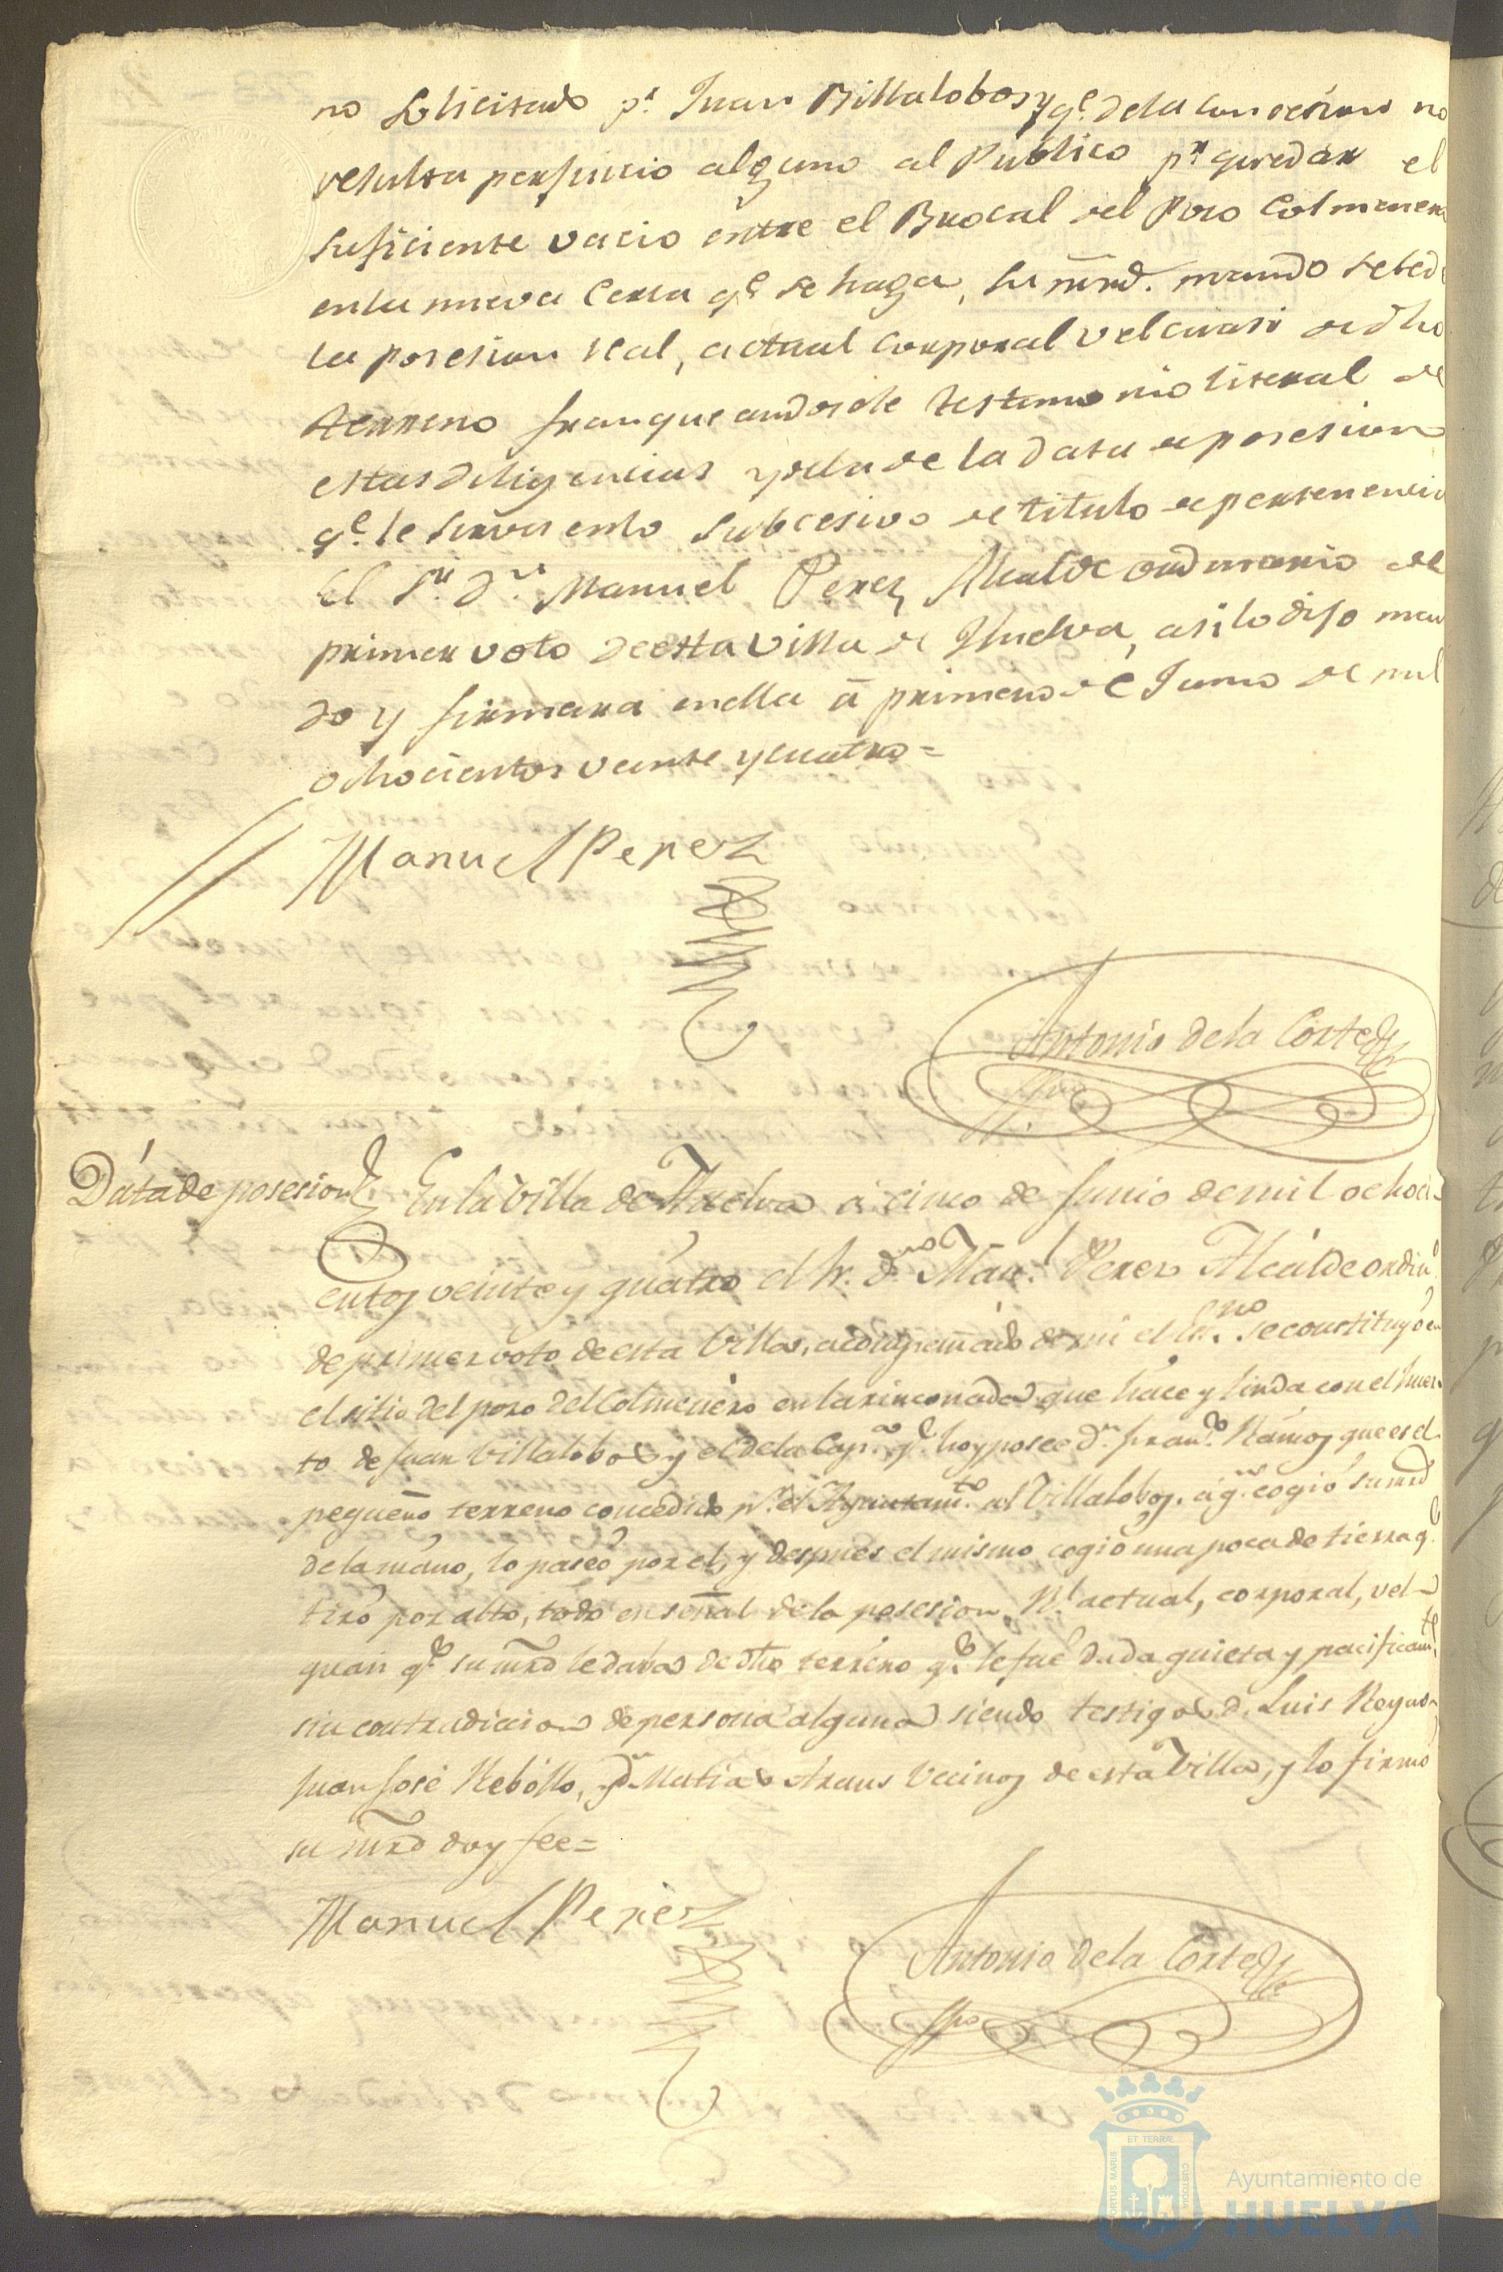 no solicitado pr. Juan Billalobos y qe. de la concesion no
resulta perjuicio alguno al Publico pr. quedar el
suficiente vacio entre el Brocal del Poso Colmenero
en la nueva Cerca qe. se haga, su mrd. mando se le dé
la posesion real, actual corporal velcuasi de dho
terreno franqueandosele testimonio literal de
estas diligencias y de la data de posesion
qe. le sirva en lo subcesivo de titulo de pertenencia
El Sr. Dn. Manuel Perez Alcalde ordinario de
primer voto de esta Villa de Huelva, asi lo dijo man
do y firmara en ella á primero de Junio de mil
ochocientos veinte y cuatro =
Manuel Perez
Antonio de la Corte
Data de posesion
En la Villa de Huelva á cinco de Junio de mil ochoci-
entos veinte y quatro el Sr. Dn. Manl. Perez Alcalde ordino.
de primer voto de esta Villa, acompañado de mi el Esno. se constituyó en
el sitio del poso del Colmenero en la rinconada que hace y linda con el huer-
to de Juan Villalobos y el de la Capna. qe. hoy posee Dn. Franco. Ramos que es el
pequeño terreno concedido pr. el Ayuntamto. al Villalobos, á qn. cogió su mrd
de la mano, lo paseó por el, y despues el mismo cogió una poca de tierra qe.
tiró por alto, todo en señal de la posesion Rl. actual, corporal, vel-
quasi qe. su mrd le daba de dho terreno qe. le fué dada quieta y pacificamte.
sin contradiccion de persona alguna siendo testigos D. Luis Reyas
Juan José Rebollo, y Dn. Matias Araus vecinos de esta Villa, y lo firmó
su mrd doy fee =
Manuel Perez
Antonio de la Corte
ET TERRAE
PORTUS MARIS
CUSTODIA
Ayuntamiento de
HUELVA